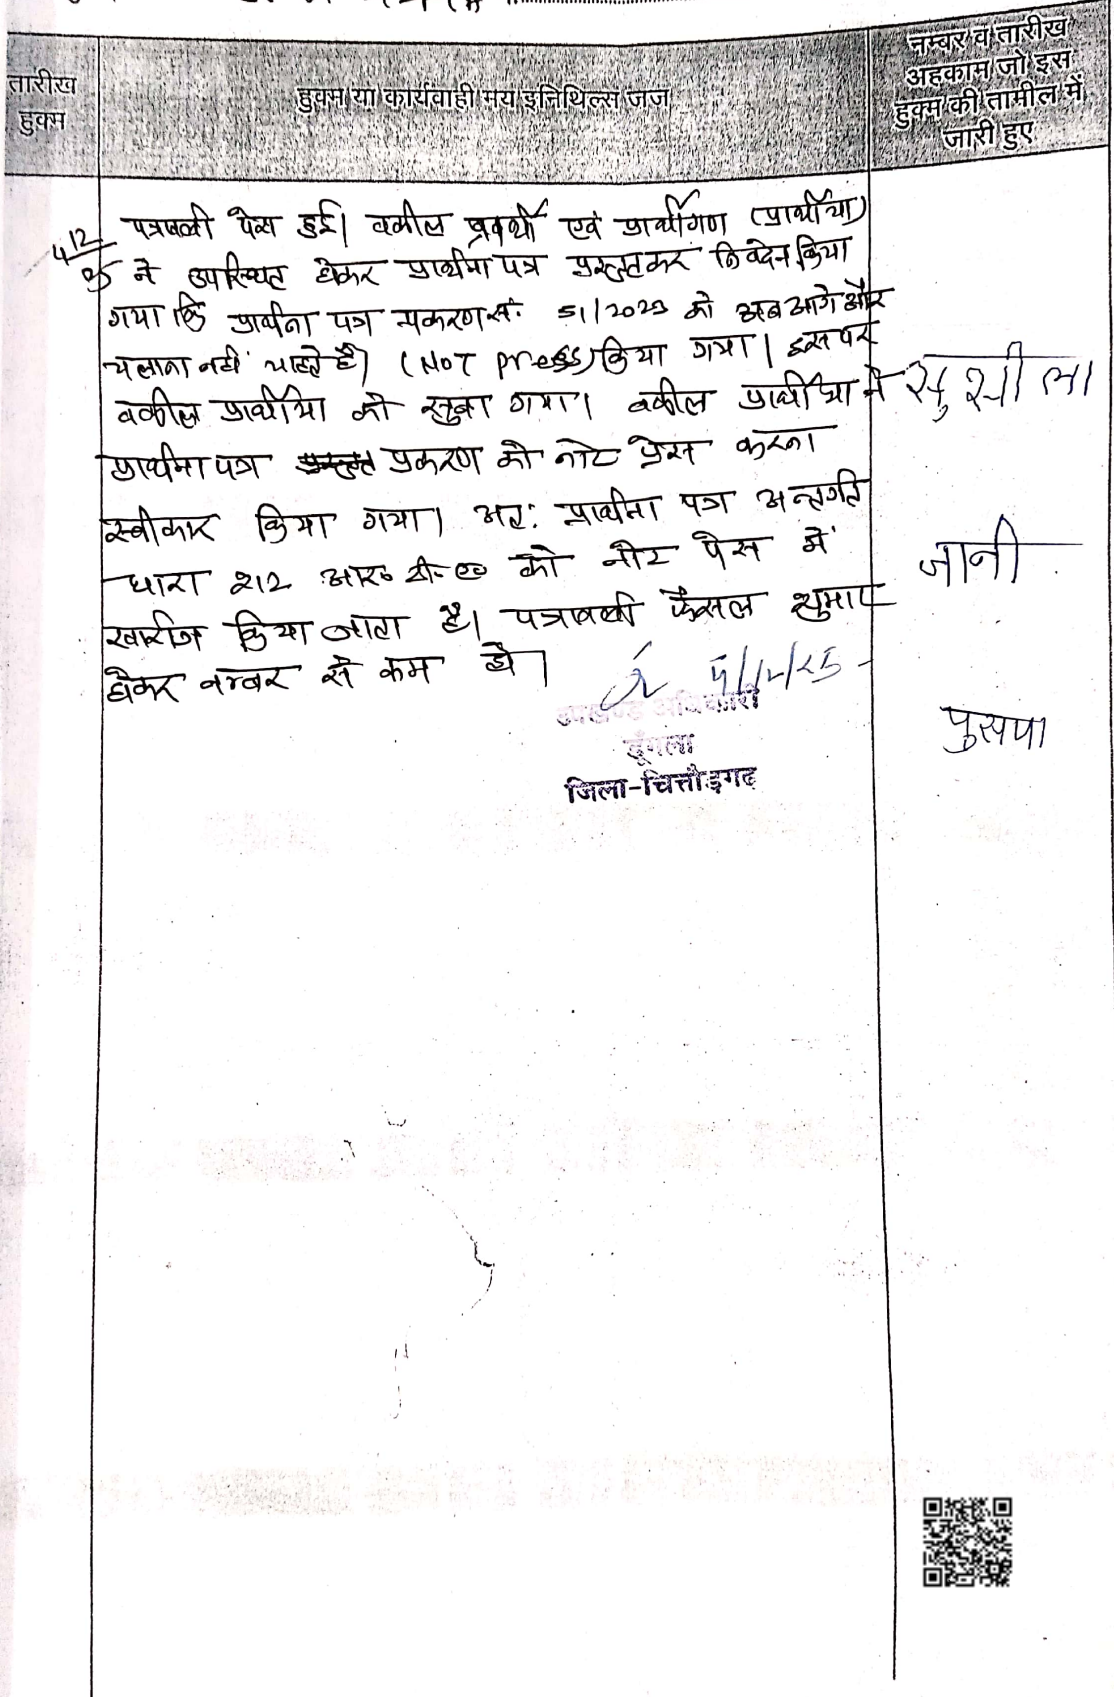 तारीख
हुक्म
हुक्म या कार्यवाही मय इनिथिल्स जज
नम्बर व तारीख
अहकाम जो इस
हुक्म की तामील में
जारी हुए
पत्रावली पेश हुई। वकील एवं प्रार्थीगण (प्रार्थीया)
ने उपस्थित होकर प्रार्थना पत्र प्रस्तुत कर निवेदन किया
गया कि प्रार्थना पत्र प्रकरण सं. 51/2023 को अब आगे और
चलाना नहीं चाहते है। (NOT press) किया गया। इस पर
वकील प्रार्थीया को सुना गया। वकील प्रार्थीया ने
प्रार्थना पत्र प्रकरण को नोट प्रेस करना
स्वीकार किया गया। अतः प्रार्थना पत्र अन्तर्गत
धारा 212 आर. टी. को नोट पेस में
खारीज किया जाता है। पत्रावली फैसल शुमार
होकर नम्बर से कम हो।
सुशीला
जानी
पुसपा
उपखण्ड अधिकारी
डूंगला
जिला-चित्तौड़गढ़